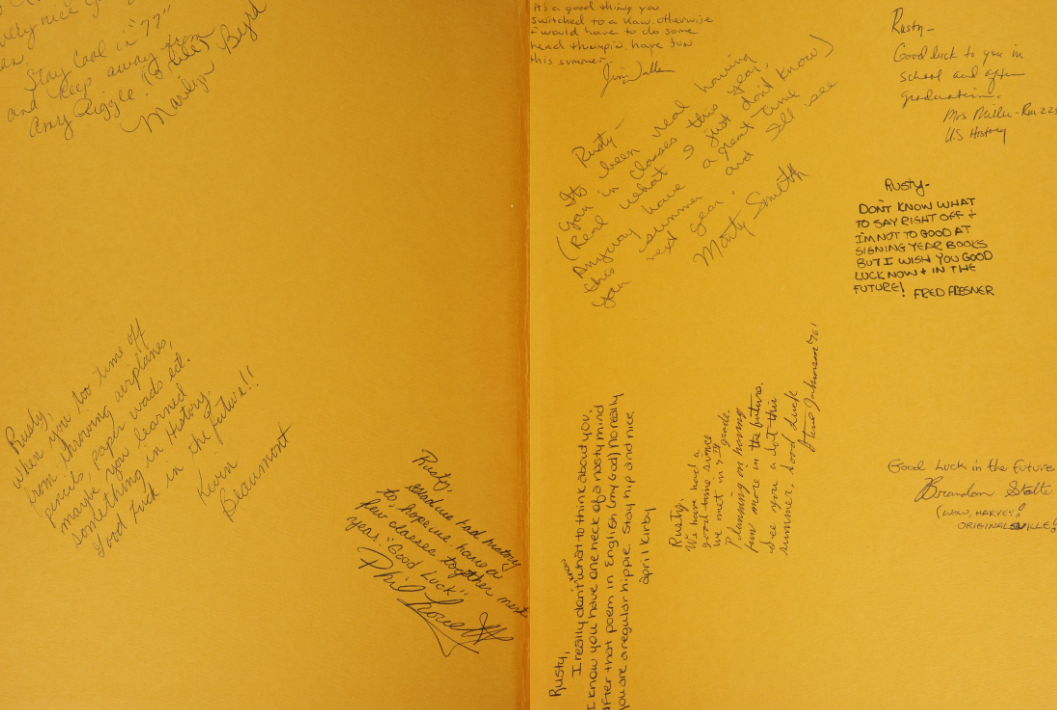 very nice
Stay Cool in "77"
and keep away from
any
Marilyn Byrd
Rusty,
when you too time off
from throwing airplanes,
pencils, paper wads ect.
maybe you learned
something in History.
Good Luck in the future!!
Kevin
Beaumont
Rusty,
had history
to, hope we have a
few classes together next
year. "Good Luck"
Phil
It's a good thing you
switched to a Kaw. otherwise
I would have to do some
head thumpin. have fun
this summer.
Jim
Rusty-
Its been real having
(you in classes this year.
(Real what I just don't know)
Anyway have a great time
this summer and I'll see
you next year.
Marty Smith
Rusty-
Good luck to you in
school and after
graduation.
Mrs
US History
Rusty-
DON'T KNOW WHAT
TO SAY RIGHT OFF +
I'M NOT TO GOOD AT
SIGNING YEAR BOOKS
BUT I WISH YOU GOOD
LUCK NOW + IN THE
FUTURE! FRED
Rusty,
I really don't know what to think about you.
I know you have one neck of a nasty mind
after that poem in English (omy God) No really
you are a regular hippie. Stay hip and nice
April Kirby
Rusty,
We have had a
good time since
we met in 7th grade.
Planning on having
fun more in the future.
See you a lot this
summer. Good Luck
Good Luck in the Future
Brandon